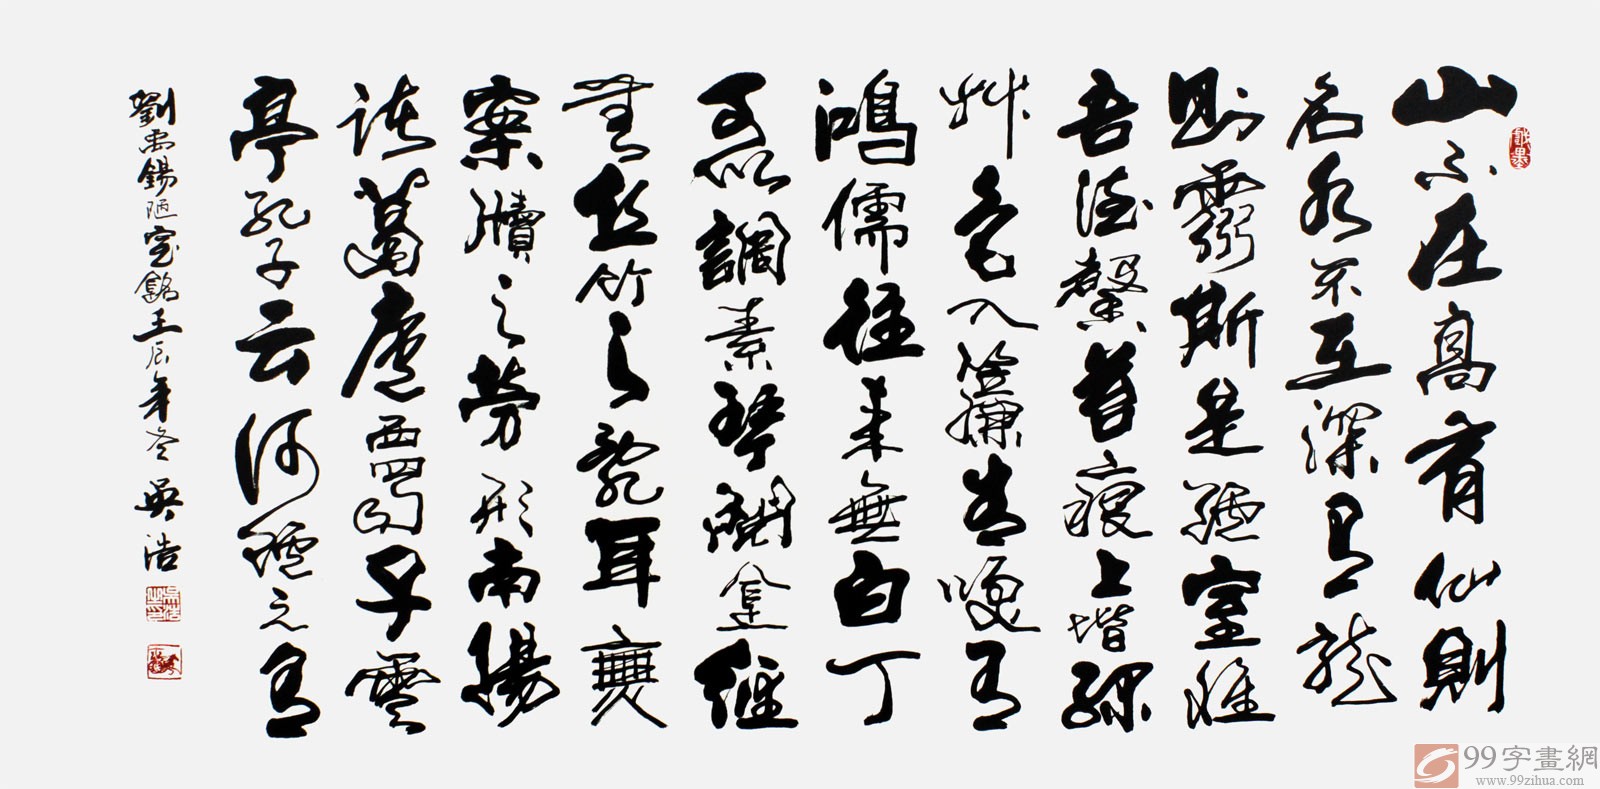 山不在高有仙則
名水不在深有龍
則靈斯是陋室惟
吾德馨苔痕上堦綠
艸色入簾青咲有
鴻儒往來無白丁
可以調素琴閱金經
無絲竹之亂耳無
案牘之勞形南陽
諸葛廬西蜀子雲
亭孔子云何陋之有
劉禹錫陋室銘壬辰年冬吳浩
99字畫網
www.99zihua.com